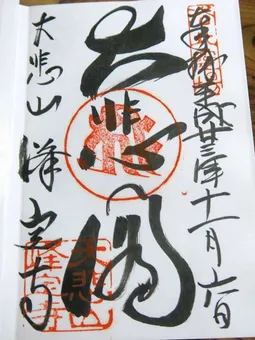 奉拝 平成廿三年十一月六日
大悲閣
大悲山 峰定寺